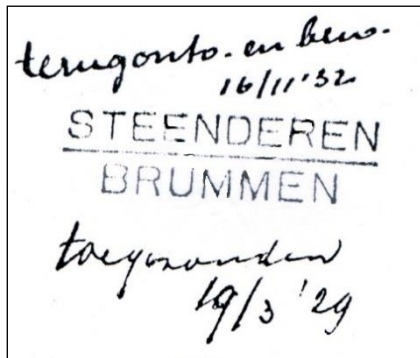 terugontv. en bew.
16/11 '32
STEENDEREN
BRUMMEN
toegezonden
19/3 '29